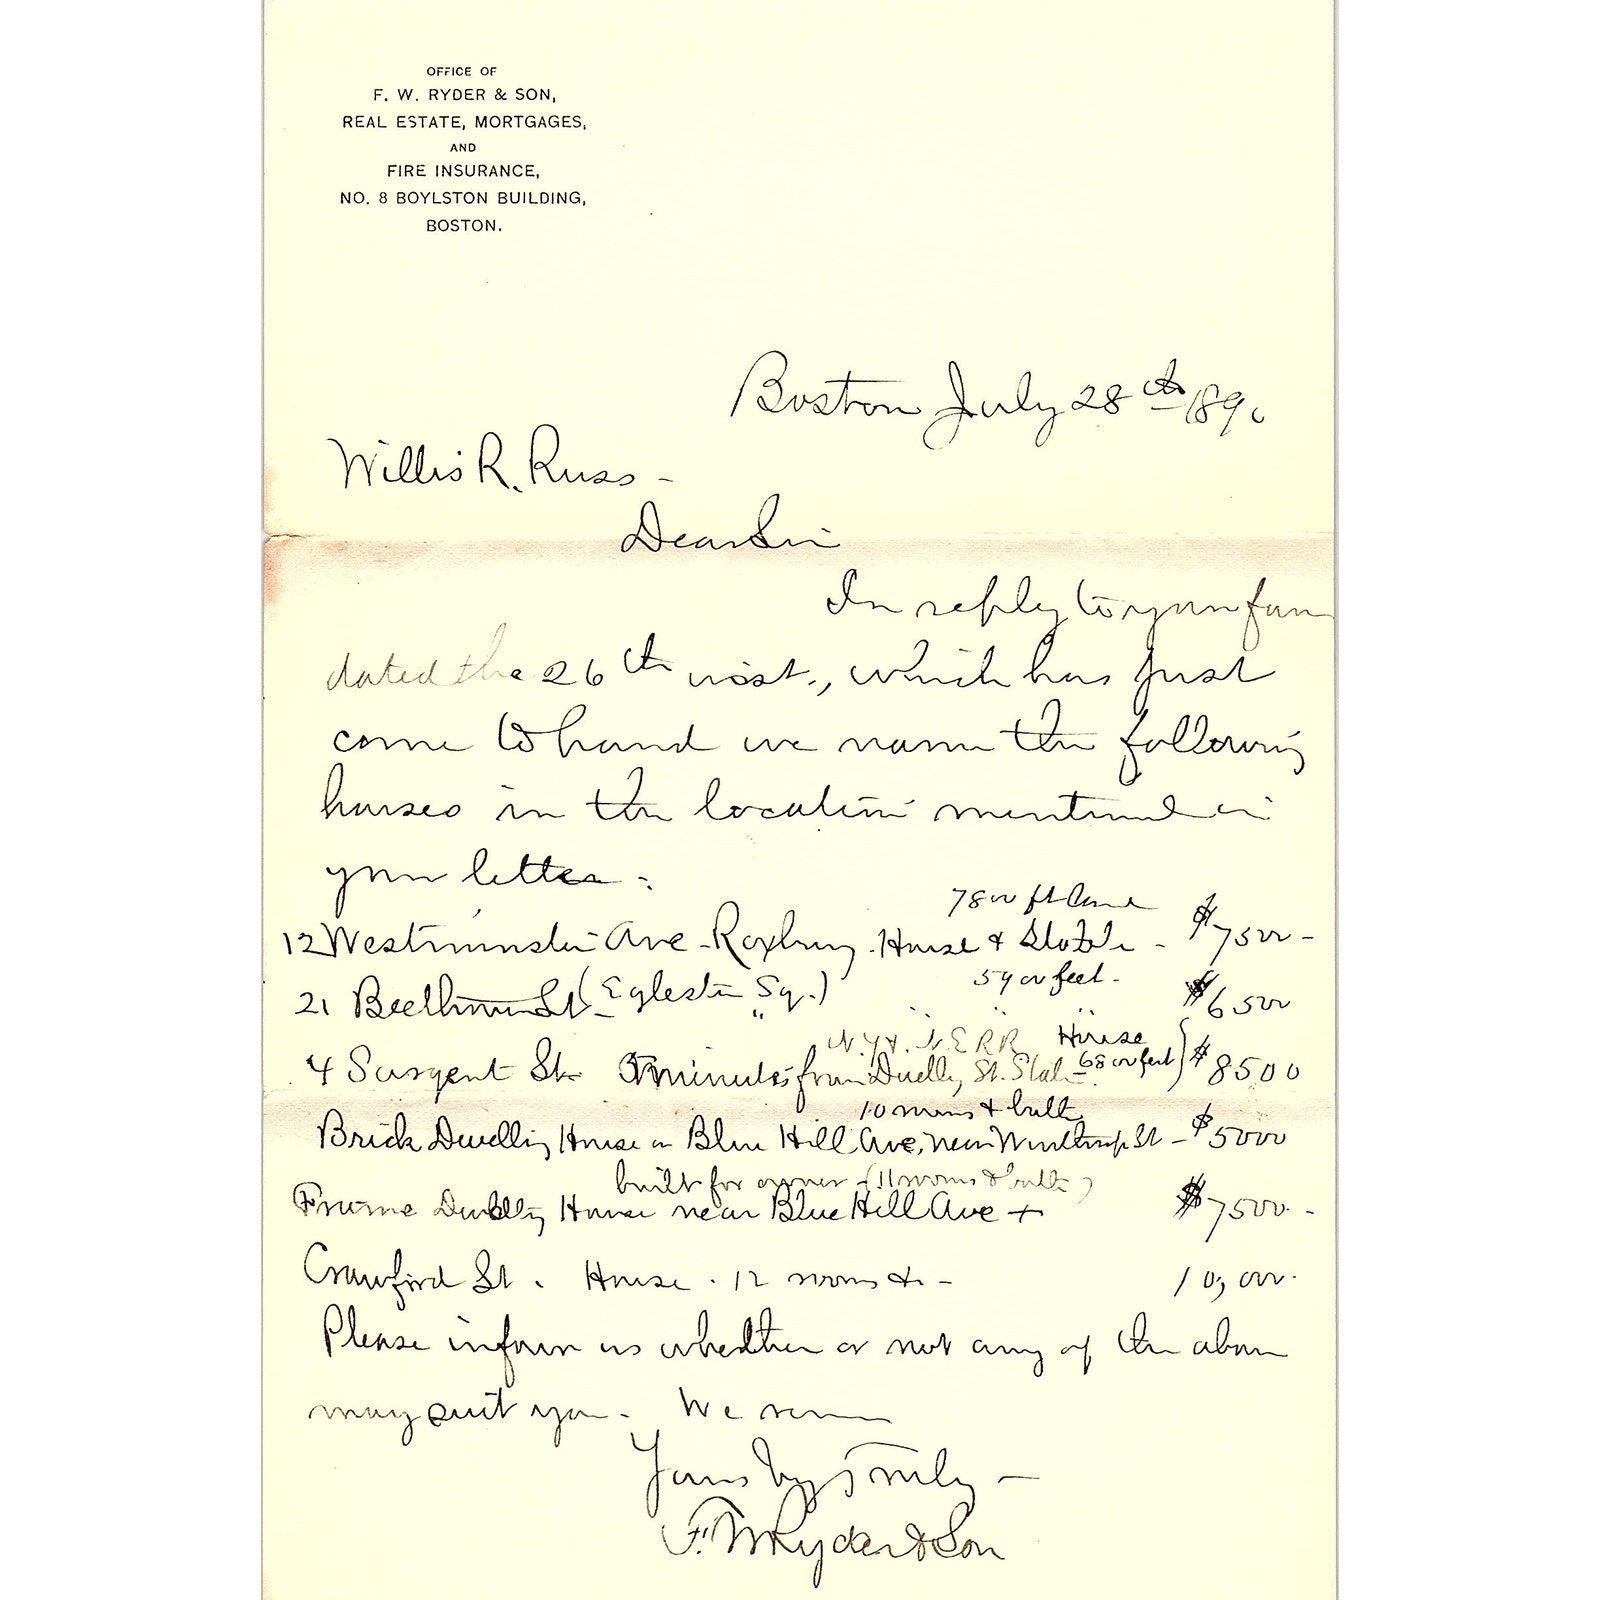 OFFICE OF
F. W. RYDER & SON,
REAL ESTATE, MORTGAGES,
AND
FIRE INSURANCE,
NO. 8 BOYLSTON BUILDING,
BOSTON.
Boston July 28th 1890
Willis R. Russ -
Dear Sir
In reply to your fav
dated the 26th inst., which has just
come to hand we name the following
houses in the location mentioned in
your letter:
7800 ft land
12 Westminster Ave - Roxbury - House & Stable - $7500 -
5900 feet -
21 Beethoven St - (Egleston Sq.) " " " $6500
N.Y. & N.E.R.R House
4 Sargent St. 5 minutes from Dudley St. Stat. 6800 feet $8500
10 rooms & bath
Brick Dwelling House on Blue Hill Ave, near Winthrop St - $5000
built for owner - (11 rooms & bath)
Frame Dwelling House near Blue Hill Ave + $7500 -
Crawford St. House - 12 rooms &c - 10,000 -
Please inform us whether or not any of the above
may suit you. We remain
Yours Very Truly -
F. W. Ryder & Son